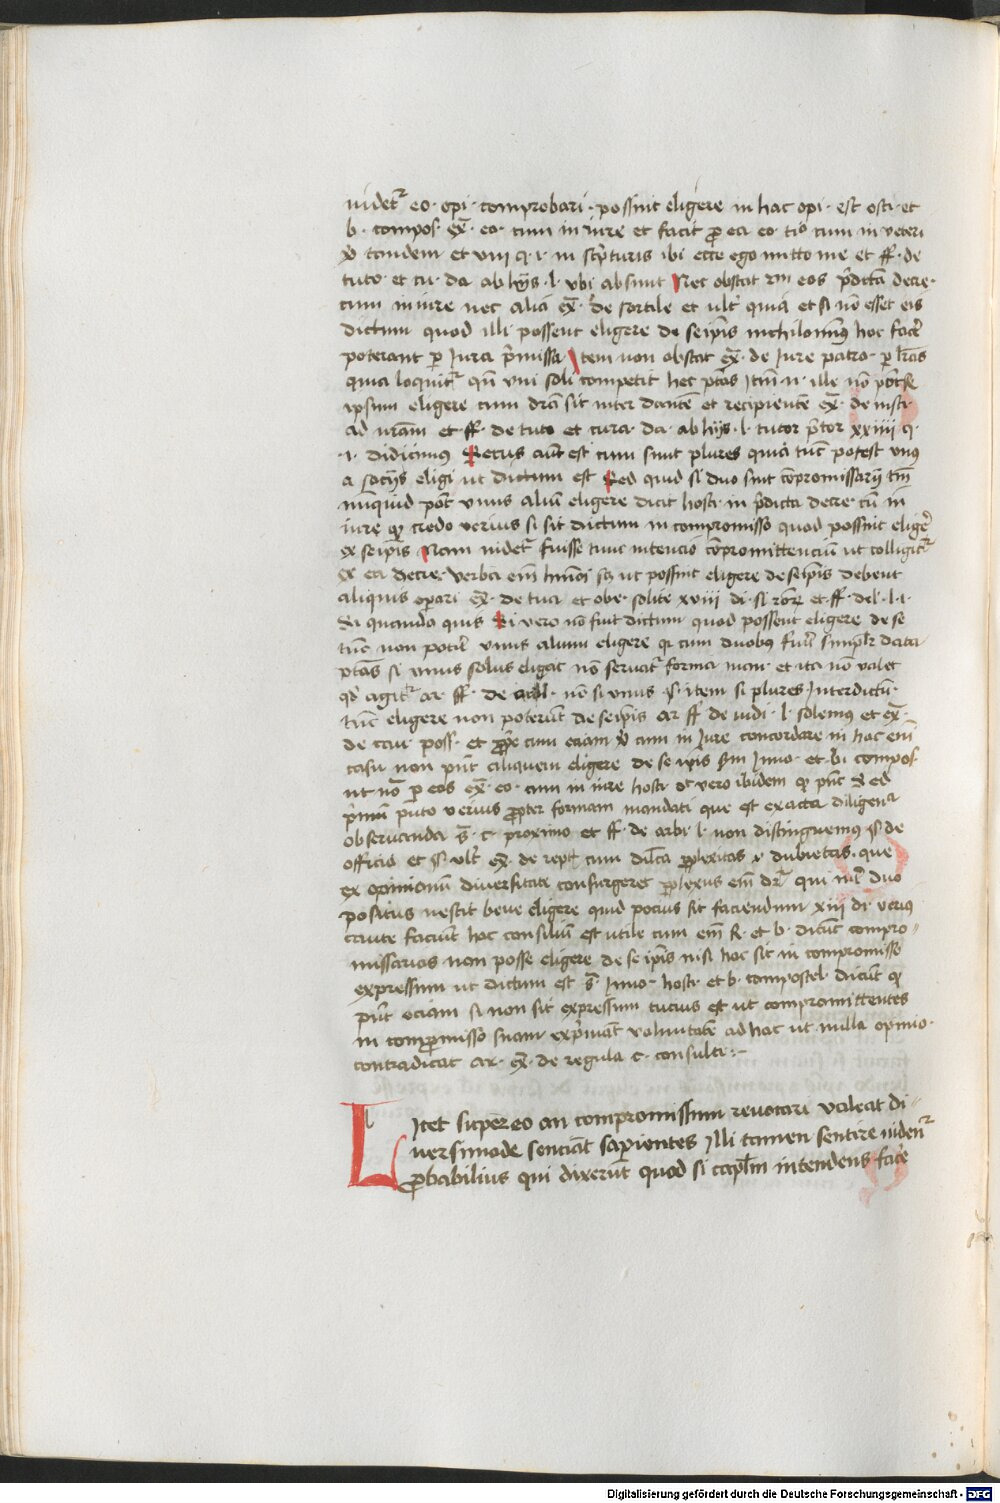 videtr eo· opi· comprobari· possint eligere in hac opi· est osti· et
b· compos· ex̄· eo· cum in iure et facit ꝓ ea eo· tiº cum in veteri
v̄ tandem et viii q· i· in scpturis ibi ecce ego mitto me et ff· de
tuto· et cu· da ab hijs· l· vbi absunt Nec obstat eos pͥdicta decre·
cum in iure nec alia ex̄· de sortile et ult quia et si nō esset eis
dictum quod illi possent eligere de seipīs nichilominꝰ hoc facͤ
poterant ꝑ Jura pͥmissa· Item non obstat ex̄· de Jure patro· ꝑ lras
quia loquitr qn̄ vni soli competit hec ptās ille nō
ipsum eligere cum dr̄ā sit inter dantē et recipientē ex̄· de insti·
ad nr̄am et ff· de tuto et cura· da· ab hijs· l· tutor pͥtor xxiiii q·
·i· didicimꝰ Secus aūt est cum sunt plures quia tūc potest vnꝰ
a socijs eligi ut dictum est Sed quid si duo sint cōpromissarij tm̄
nūquid pōt vnus aliū eligere dicit hosti· in pͥdicta decre· cū in
iure qꝫ credo verius si sit dictum in compromisso quod possint eligͤe
ex seipīs Nam videtr fuisse tunc intencio cōpromittenciū ut colligitr
ex ea decre· verba em̄ ut possint eligere de seipīs debent
aliquid operari ex̄· de tua et obe· solite xviii di· si et ff· del· l· i·
si quando quis Si vero nō fuit dictum quod possent eligere de se
tūc non potuͥt vnus alium eligere qꝫ cum duobꝰ fuit simplr data
ptās si vnus solus eligat nō servatr forma man· et ita nō valet
qd agitr ar· ff· de nō si vnus §· item si plures Interdictū·
tūc eligere non poterūt de seipīs ar ff de iudi· l· solemꝰ et ex̄·
de cau· poss· et ꝓpͥe cum eciam v̄ cum in Jure concordare in hac em̄
casu non pn̄t aliquem eligere de se ipīs sm̄ Inno· et b· compos·
ut nō ꝑ eos ex̄· eo· cum in iure hosti· vero ibidem qꝫ pn̄t Sed
pͥmū puto verius ꝓpter formam mandati que est exacta diligenr
observanda s̄· c· proximo et ff· de arbi· l· non distinguemꝰ §· de
officio et §· ult· ex̄· de rept cum dilcā ꝑplexitas r dubietas· que
ex opinionū diversitate consurgeret ꝑplexus em̄ drͬ qui intͤ duo
positus nescit bene eligere quid pocius sit faciendum xiii di· nerui
caute faciūt hoc consiliū est utile cum em̄ R· et b· dicūt compro-
missarios non posse eligere de se ipīs nisi hoc sit in compromisso
expressum ut dictum est s̄· Inno· hosti· et b· compostel· dicūt qꝫ
pn̄t eciam si non sit expressum tucius est ut compromittentes
in comꝓmisso suam expͥmāt voluntatē ad hac ut nulla opinio·
contradicat ar· ex̄· de regula c· consulti:-
Licet super eo an compromissum revocari valeat di-
versimode senciāt sapientes Illi tamen sentire videnr
ꝓbabilius qui dixerūt quod si capͥlm intendens facͤe
Digitalisierung gefördert durch die Deutsche Forschungsgemeinschaft - DFG